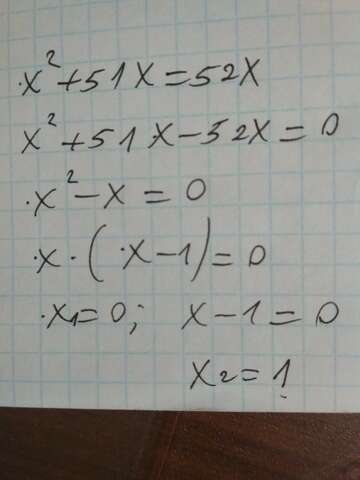 x² + 51x = 52x
x² + 51x − 52x = 0
x² − x = 0
x · (x − 1) = 0
x₁ = 0; x − 1 = 0
x₂ = 1